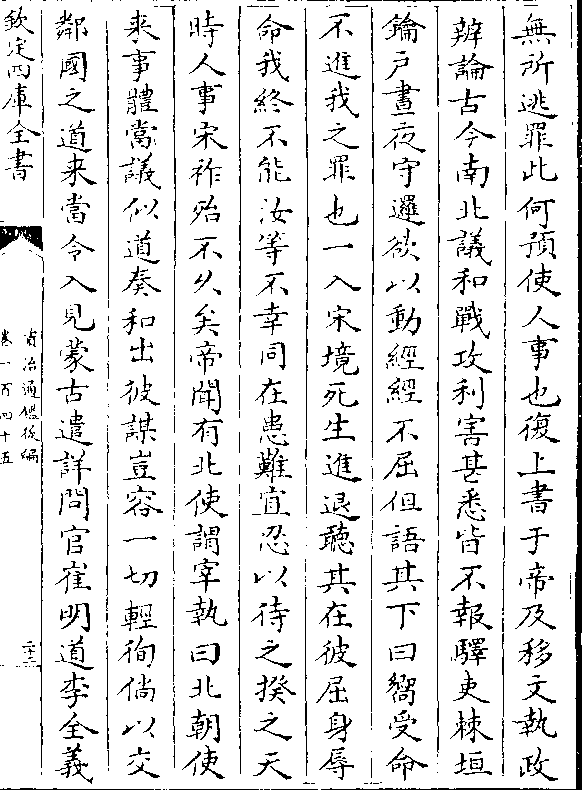 無所逃罪此何預使人事也復上書于帝及移文執政
辨論古今南北議和戰攻利害甚悉皆不報驛吏棘垣
鑰戶晝夜守邏欲以動經經不屈但語其下曰嚮受命
不進我之罪也一入宋境死生進退聽其在彼屈身辱
命我終不能汝等不幸同在患難宜忍以待之揆之天
時人事宋祚殆不久矣帝聞有北使謂宰執曰北朝使
来事體當議似道奏和出彼謀豈容一切輕徇倘以交
鄰國之道来當令入見蒙古遣詳問官崔明道李全義
欽定四庫全書
資治通鑑後編
卷一百四十五
二十三